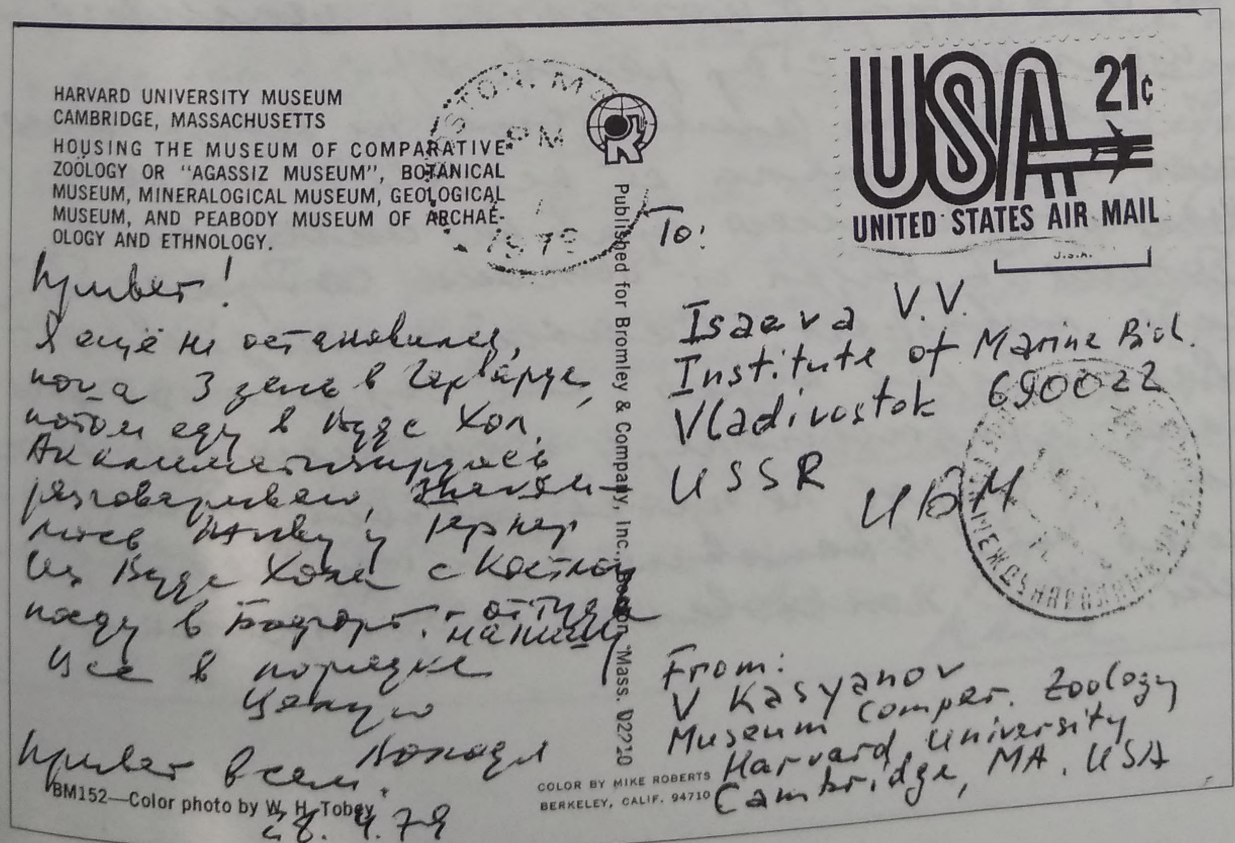 HARVARD UNIVERSITY MUSEUM
CAMBRIDGE, MASSACHUSETTS
HOUSING THE MUSEUM OF COMPARATIVE
ZOÖLOGY OR “AGASSIZ MUSEUM”, BOTANICAL
MUSEUM, MINERALOGICAL MUSEUM, GEOLOGICAL
MUSEUM, AND PEABODY MUSEUM OF ARCHAE-
OLOGY AND ETHNOLOGY.
Привет!
Я ещё не остановился,
пока 3 день в Гарварде,
потом еду в Вудс Хол.
Акклиматизируюсь
разговариваю, знаком-
люсь живу у
Из Вудс Хола с Костей
поеду в - оттуда напишу
Все в порядке
Целую
Володя
Привет всем.
28.4.79
BM152—Color photo by W. H. Tobey
PM
1979
K
Published for Bromley & Company, Inc., Boston, Mass. 02210
COLOR BY MIKE ROBERTS
BERKELEY, CALIF. 94710
USA 21c
UNITED STATES AIR MAIL
U.S.A.
To:
Isaeva V.V.
Institute of Marine Biol.
Vladivostok 690022
USSR
ИБМ
From:
V Kasyanov
Museum Compar. Zoology
Harvard University
Cambridge, MA. USA